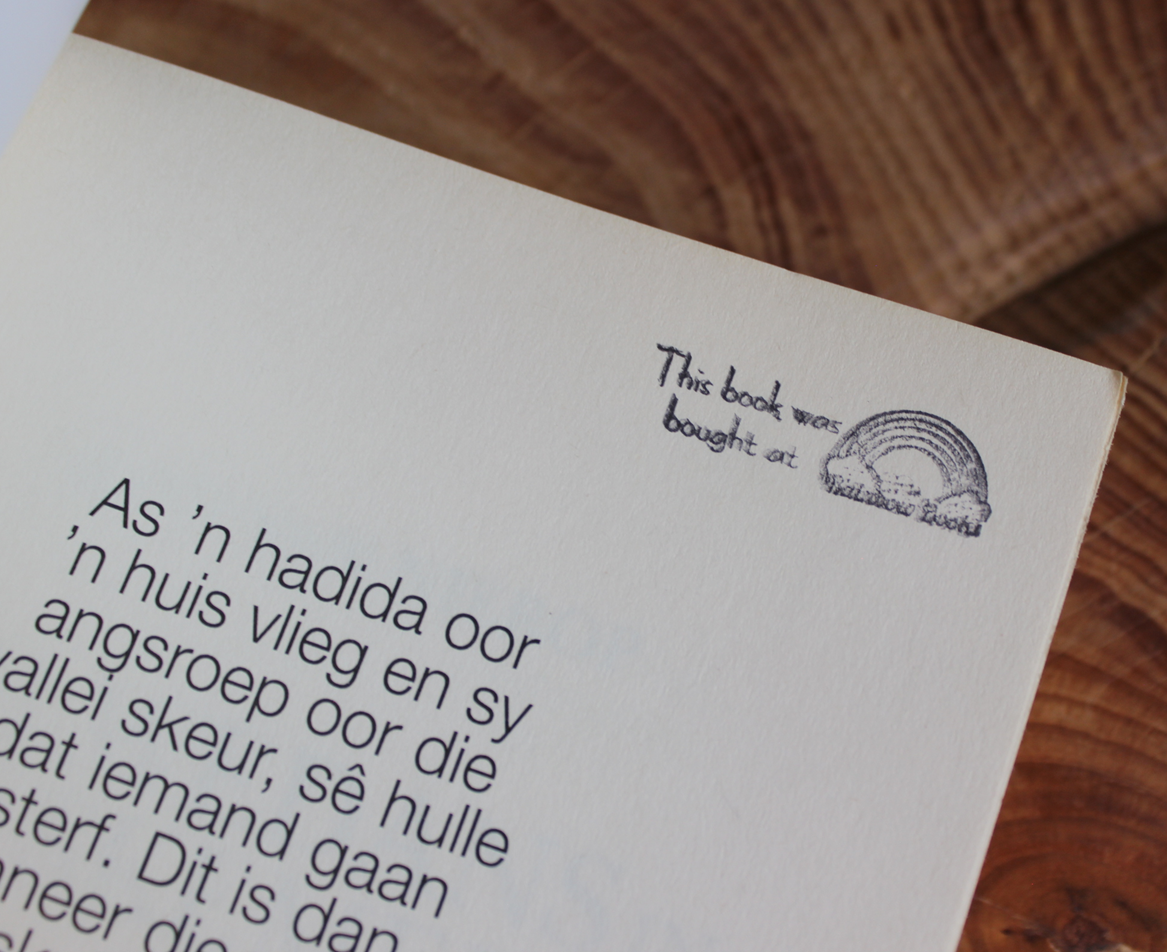 This book was
bought at
Rainbow Books
As 'n hadida oor
'n huis vlieg en sy
angsroep oor die
vallei skeur, sê hulle
dat iemand gaan
sterf. Dit is dan
die